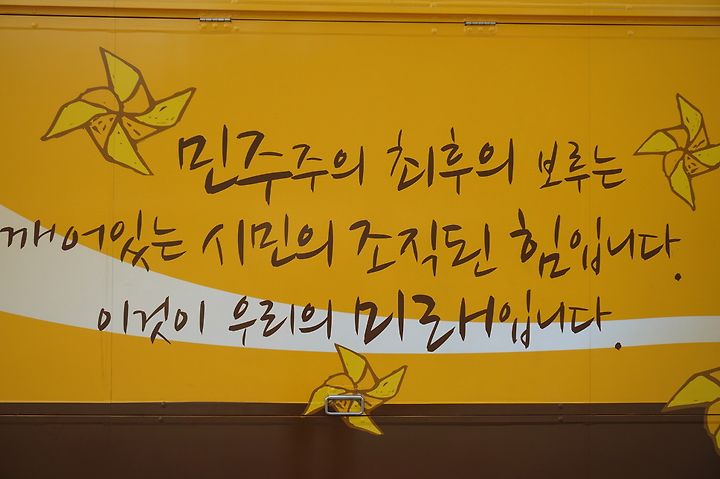 민주주의 최후의 보루는
깨어있는 시민의 조직된 힘입니다.
이것이 우리의 미래입니다.